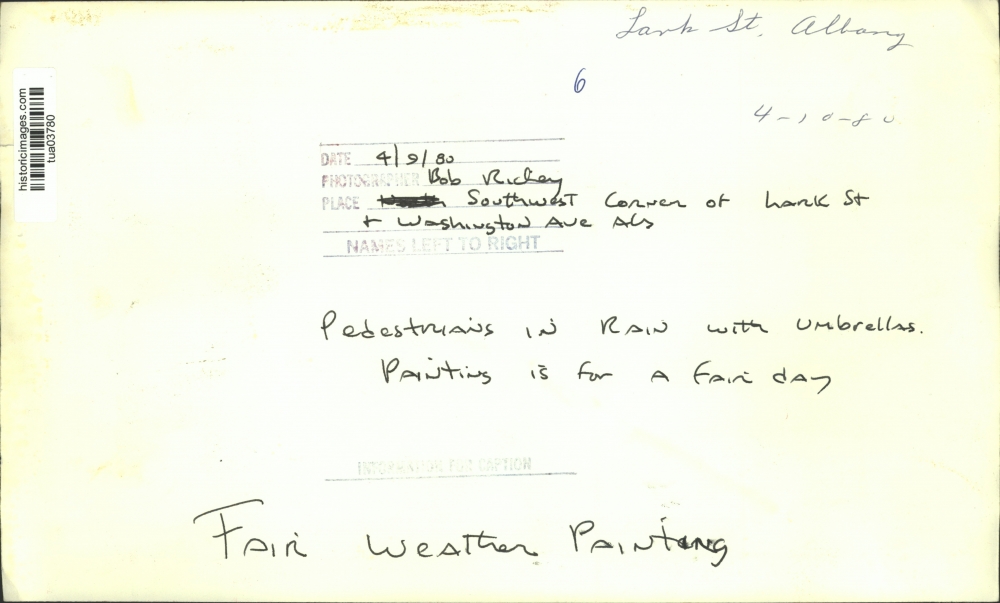 Lark St, Albany
6
4-10-80
historicimages.com
tua03780
DATE 4/9/80
PHOTOGRAPHER Bob Richey
PLACE Southwest Corner of Lark St
+ Washington Ave Alb
NAMES LEFT TO RIGHT
Pedestrians in Rain with Umbrellas.
Painting is for a fair day
INFORMATION FOR CAPTION
Fair Weather Painting